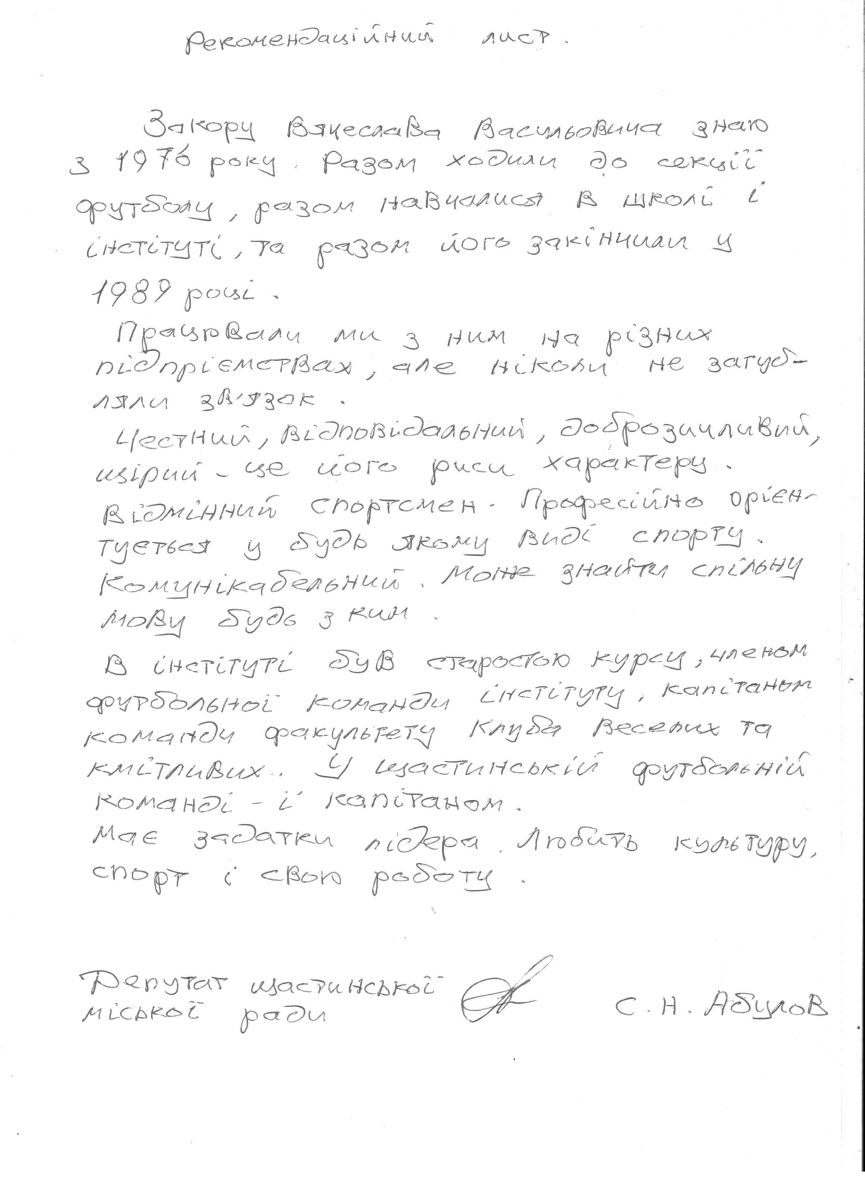 Рекомендаційний лист.
Закору Вячеслава Васильовича знаю
з 1976 року. Разом ходили до секції
футболу, разом навчалися в школі і
інституті, та разом його закінчили у
1989 році.
Працювали ми з ним на різних
підпріємствах, але ніколи не загуб-
ляли зв'язок.
Честний, відповідальний, доброзичливий,
щірий - це його риси характеру.
Відмінний спортсмен. Професійно орієн-
тується у будь якому виді спорту.
Комунікабельний. Може знайти спільну
мову будь з ким.
В інституті був старостою курсу, членом
футбольної команди інституту, капітаном
команди факультету Клуба Веселих та
кмітливих. У щастинській футбольній
команді - і капітаном.
Має задатки лідера. Любить культуру,
спорт і свою роботу.
Депутат щастинської
міської ради
С. Н. Абулов